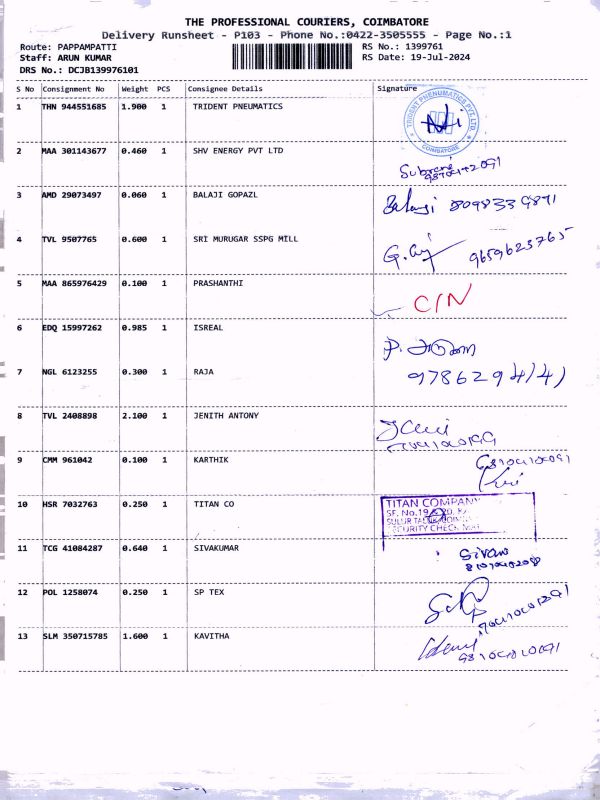 THE PROFESSIONAL COURIERS, COIMBATORE
Delivery Runsheet - P103 - Phone No.:0422-3505555 - Page No.:1
Route: PAPPAMPATTI RS No.: 1399761
Staff: ARUN KUMAR RS Date: 19-Jul-2024
DRS No.: DCJB139976101
S No Consignment No Weight PCS Consignee Details Signature
1 THN 944551685 1.900 1 TRIDENT PNEUMATICS
TRIDENT PNEUMATICS PVT. LTD.
COIMBATORE
2 MAA 301143677 0.460 1 SHV ENERGY PVT LTD
3 AMD 29073497 0.060 1 BALAJI GOPAZL
Balaji 8098339891
4 TVL 9507765 0.600 1 SRI MURUGAR SSPG MILL
9659623765
5 MAA 865976429 0.100 1 PRASHANTHI
C/N
6 EDQ 15997262 0.985 1 ISREAL
7 NGL 6123255 0.300 1 RAJA
8 TVL 2408898 2.100 1 JENITH ANTONY
9 CMM 961042 0.100 1 KARTHIK
10 HSR 7032763 0.250 1 TITAN CO
TITAN COMPANY
SECURITY CHECK
11 TCG 41084287 0.640 1 SIVAKUMAR
12 POL 1258074 0.250 1 SP TEX
13 SLM 350715785 1.600 1 KAVITHA